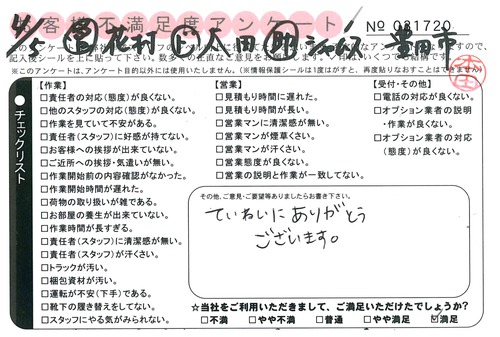 お客様不満足度アンケート
No 081720
4/5 花村 八田 豊田市
記入後シールを上に貼って下さい。
※このアンケートは、アンケート目的以外には使用いたしません。（※情報保護シールは1度はがすと、再度貼りなおすことはできません）
チェックリスト
【作業】
□責任者の対応（態度）が良くない。
□他のスタッフの対応（態度）が良くない。
□作業を見ていて不安がある。
□責任者（スタッフ）に好感が持てない。
□お客様への挨拶が出来ていない。
□ご近所への挨拶・気遣いが無い。
□作業開始前の内容確認がなかった。
□作業開始時間が遅れた。
□荷物の取り扱いが雑である。
□お部屋の養生が出来ていない。
□作業時間が長すぎる。
□責任者（スタッフ）に清潔感が無い。
□責任者（スタッフ）が汗くさい。
□トラックが汚い。
□梱包資材が汚い。
□運転が不安（下手）である。
□靴下の履き替えをしてない。
□スタッフにやる気がみられない。
【営業】
□見積もり時間に遅れた。
□見積もり時間が長い。
□営業マンに清潔感が無い。
□営業マンが煙草くさい。
□営業マンが汗くさい。
□営業態度が良くない。
□営業の説明と作業が一致してない。
【受付・その他】
□電話の対応が良くない。
□オプション業者の説明・作業が良くない。
□オプション業者の対応（態度）が良くない。
その他、ご意見・ご要望等ありましたらお書き下さい。
ていねいにありがとう
ございます。
☆当社をご利用いただきまして、ご満足いただけたでしょうか？
□不満 □やや不満 □普通 □やや満足 ☑満足